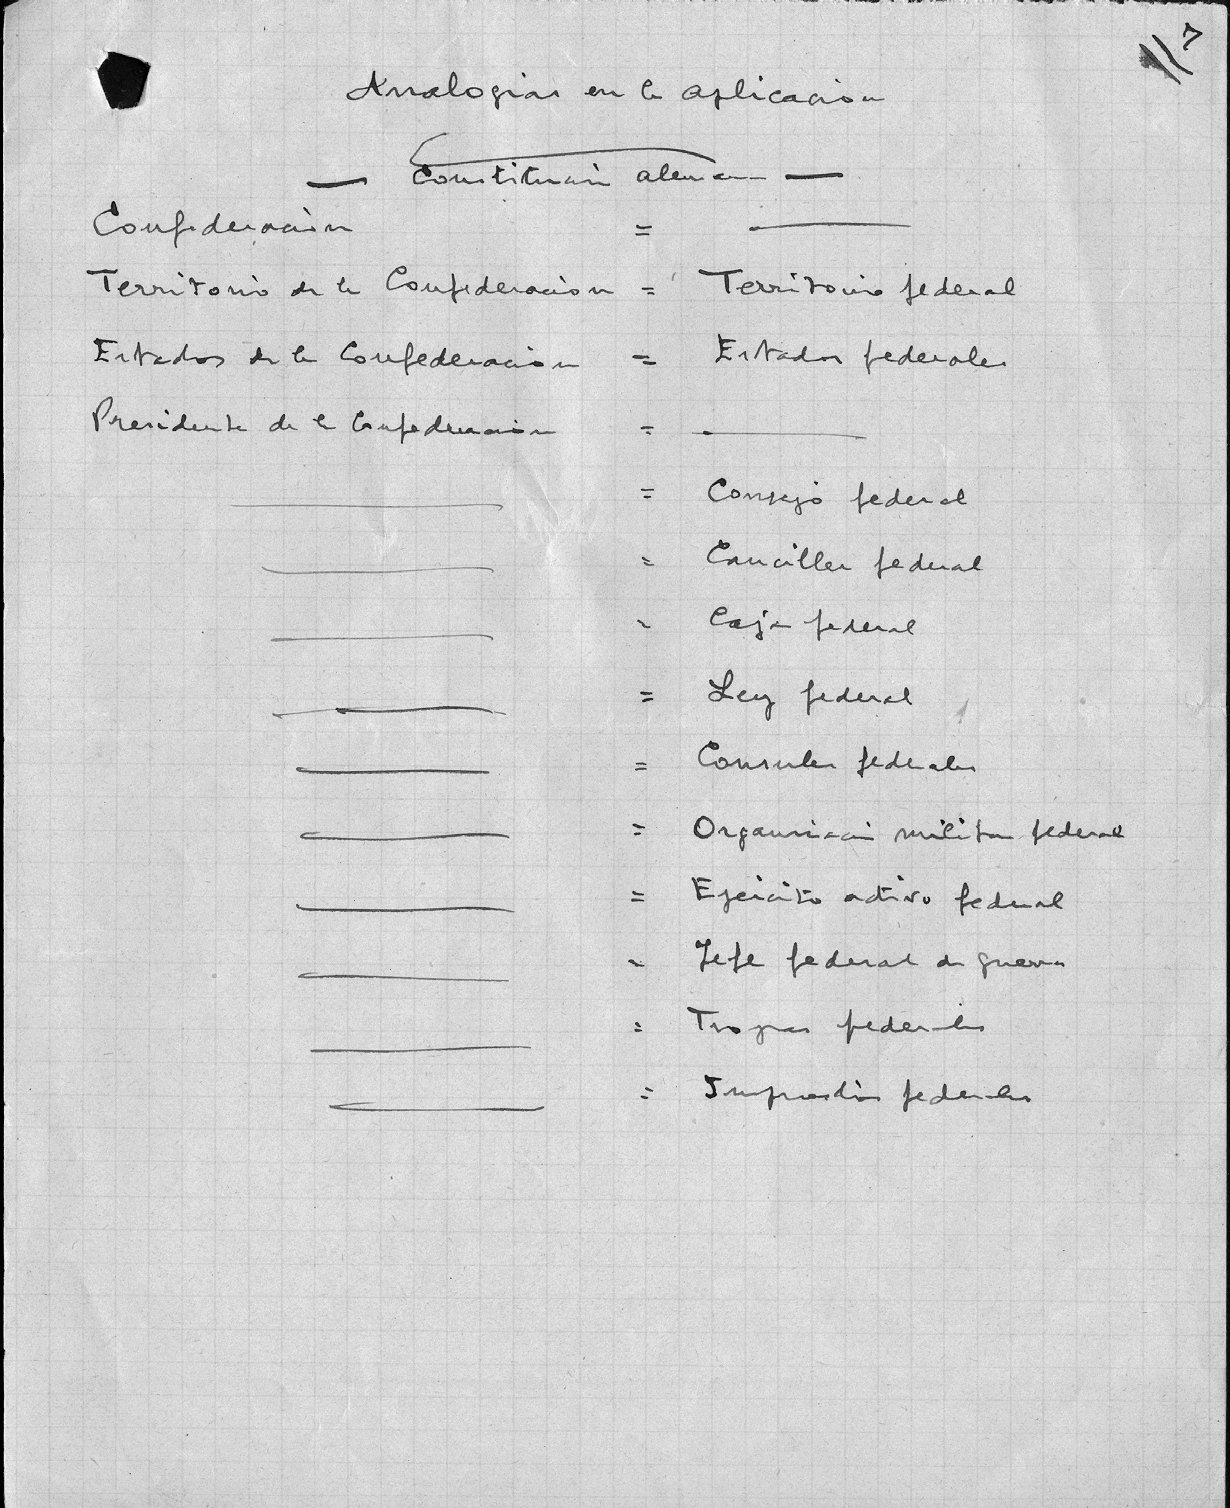 7
Analogias en la aplicación
— Constitución alemana —
Confederación = ———
Territorio de la Confederación = Territorio federal
Estados de la Confederación = Estados federales
Presidente de la Confederación = ———
——— = Consejo federal
——— = Canciller federal
——— = Caja federal
——— = Ley federal
——— = Consules federales
——— = Organización militar federal
——— = Ejército activo federal
——— = Jefe federal de guerra
——— = Tropas federales
——— = federales